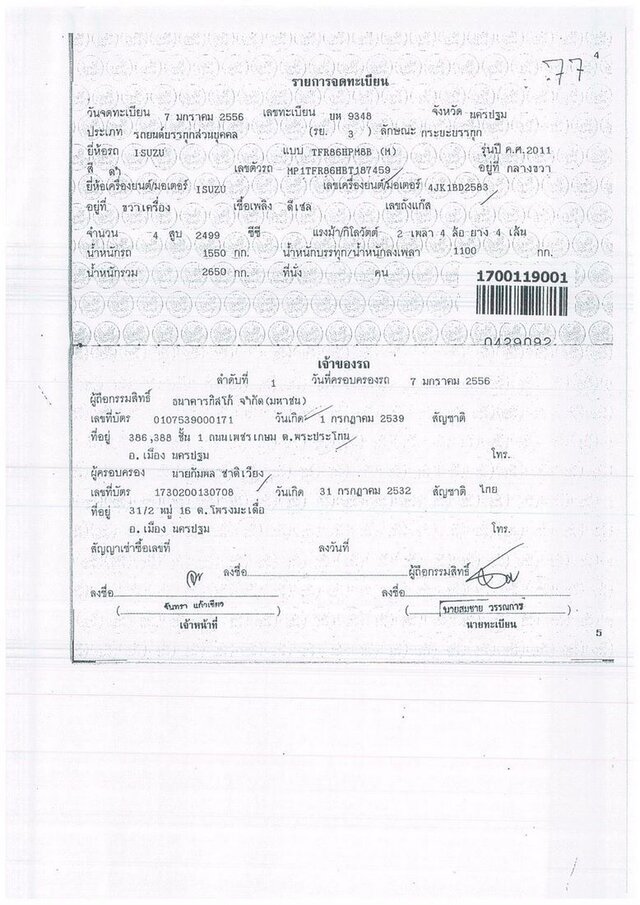 77
4
รายการจดทะเบียน
วันจดทะเบียน 7 มกราคม 2556 เลขทะเบียน บห 9348 จังหวัด นครปฐม
ประเภท รถยนต์บรรทุกส่วนบุคคล (รย. 3 ) ลักษณะ กระบะบรรทุก
ยี่ห้อรถ ISUZU แบบ TFR86HPM8B (M) รุ่นปี ค.ศ.2011
สี ดำ เลขตัวรถ MP1TFR86HBT187459 อยู่ที่ กลางขวา
ยี่ห้อเครื่องยนต์/มอเตอร์ ISUZU เลขเครื่องยนต์/มอเตอร์ 4JK1BD2583
อยู่ที่ ขวาเครื่อง เชื้อเพลิง ดีเซล เลขถังแก๊ส
จำนวน 4 สูบ 2499 ซีซี แรงม้า/กิโลวัตต์ 2 เพลา 4 ล้อ ยาง 4 เส้น
น้ำหนักรถ 1550 กก. น้ำหนักบรรทุก/น้ำหนักลงเพลา 1100 กก.
น้ำหนักรวม 2650 กก. ที่นั่ง คน
1700119001
0429092
เจ้าของรถ
ลำดับที่ 1 วันที่ครอบครองรถ 7 มกราคม 2556
ผู้ถือกรรมสิทธิ์ ธนาคารทิสโก้ จำกัด(มหาชน)
เลขที่บัตร 0107539000171 วันเกิด 1 กรกฎาคม 2539 สัญชาติ
ที่อยู่ 386,388 ชั้น 1 ถนนเพชรเกษม ต.พระประโทน
อ.เมือง นครปฐม โทร.
ผู้ครอบครอง นายกัมพล ชาติเวียง
เลขที่บัตร 1730200130708 วันเกิด 31 กรกฎาคม 2532 สัญชาติ ไทย
ที่อยู่ 31/2 หมู่ 16 ต.โพรงมะเดื่อ
อ.เมือง นครปฐม โทร.
สัญญาเช่าซื้อเลขที่ ลงวันที่
ลงชื่อ ผู้ถือกรรมสิทธิ์
ลงชื่อ ลงชื่อ
( จันทรา แก้วเขียว ) ( นายสมชาย วรรณการ )
เจ้าหน้าที่ นายทะเบียน
5